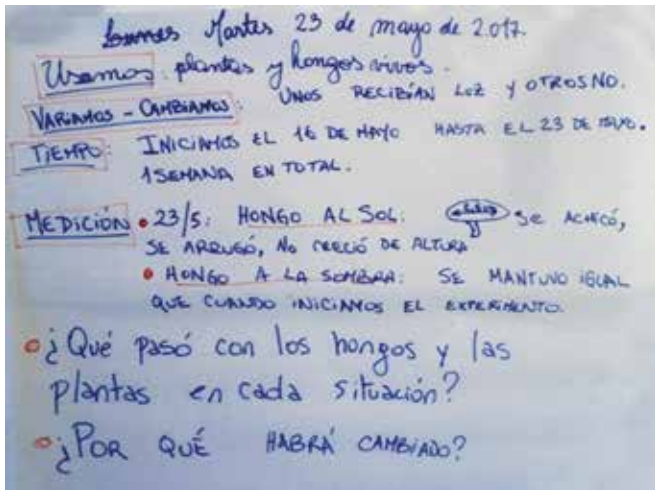 Lunes Martes 23 de mayo de 2.017.
Usamos: plantas y hongos vivos.
VARIAMOS - CAMBIAMOS: UNOS RECIBÍAN LUZ Y OTROS NO.
TIEMPO: INICIAMOS EL 16 DE MAYO HASTA EL 23 DE MAYO.
1 SEMANA EN TOTAL.
MEDICIÓN • 23/5: HONGO AL SOL: SE ACHICÓ,
SE ARRUGÓ, NO CRECIÓ DE ALTURA
• HONGO A LA SOMBRA: SE MANTUVO IGUAL
QUE CUANDO INICIAMOS EL EXPERIMENTO.
• ¿Qué pasó con los hongos y las
plantas en cada situación?
• ¿POR QUÉ HABRÁ CAMBIADO?